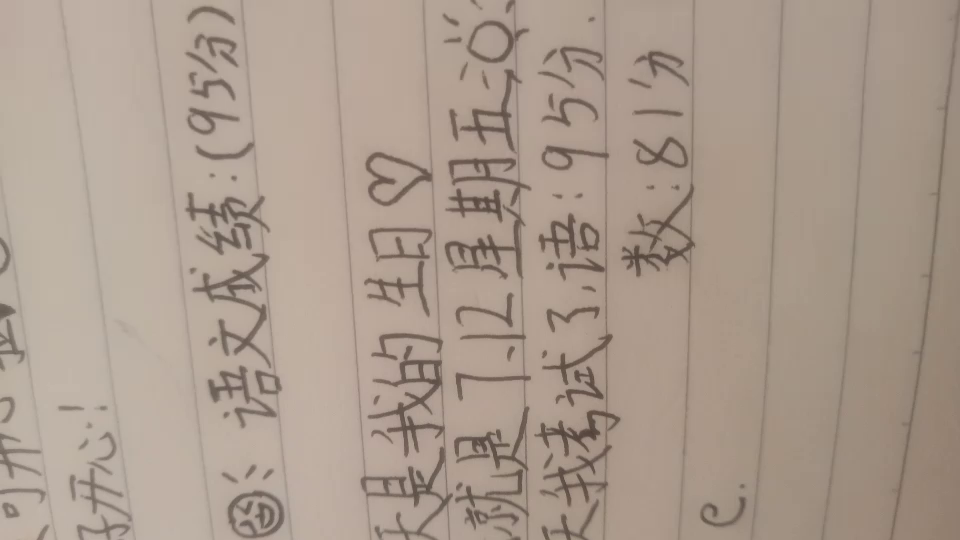 开心!
语文成绩:(95分)
天是我的生日♡
就是 7.12星期五
天我考试了.语:95分.
数:81分